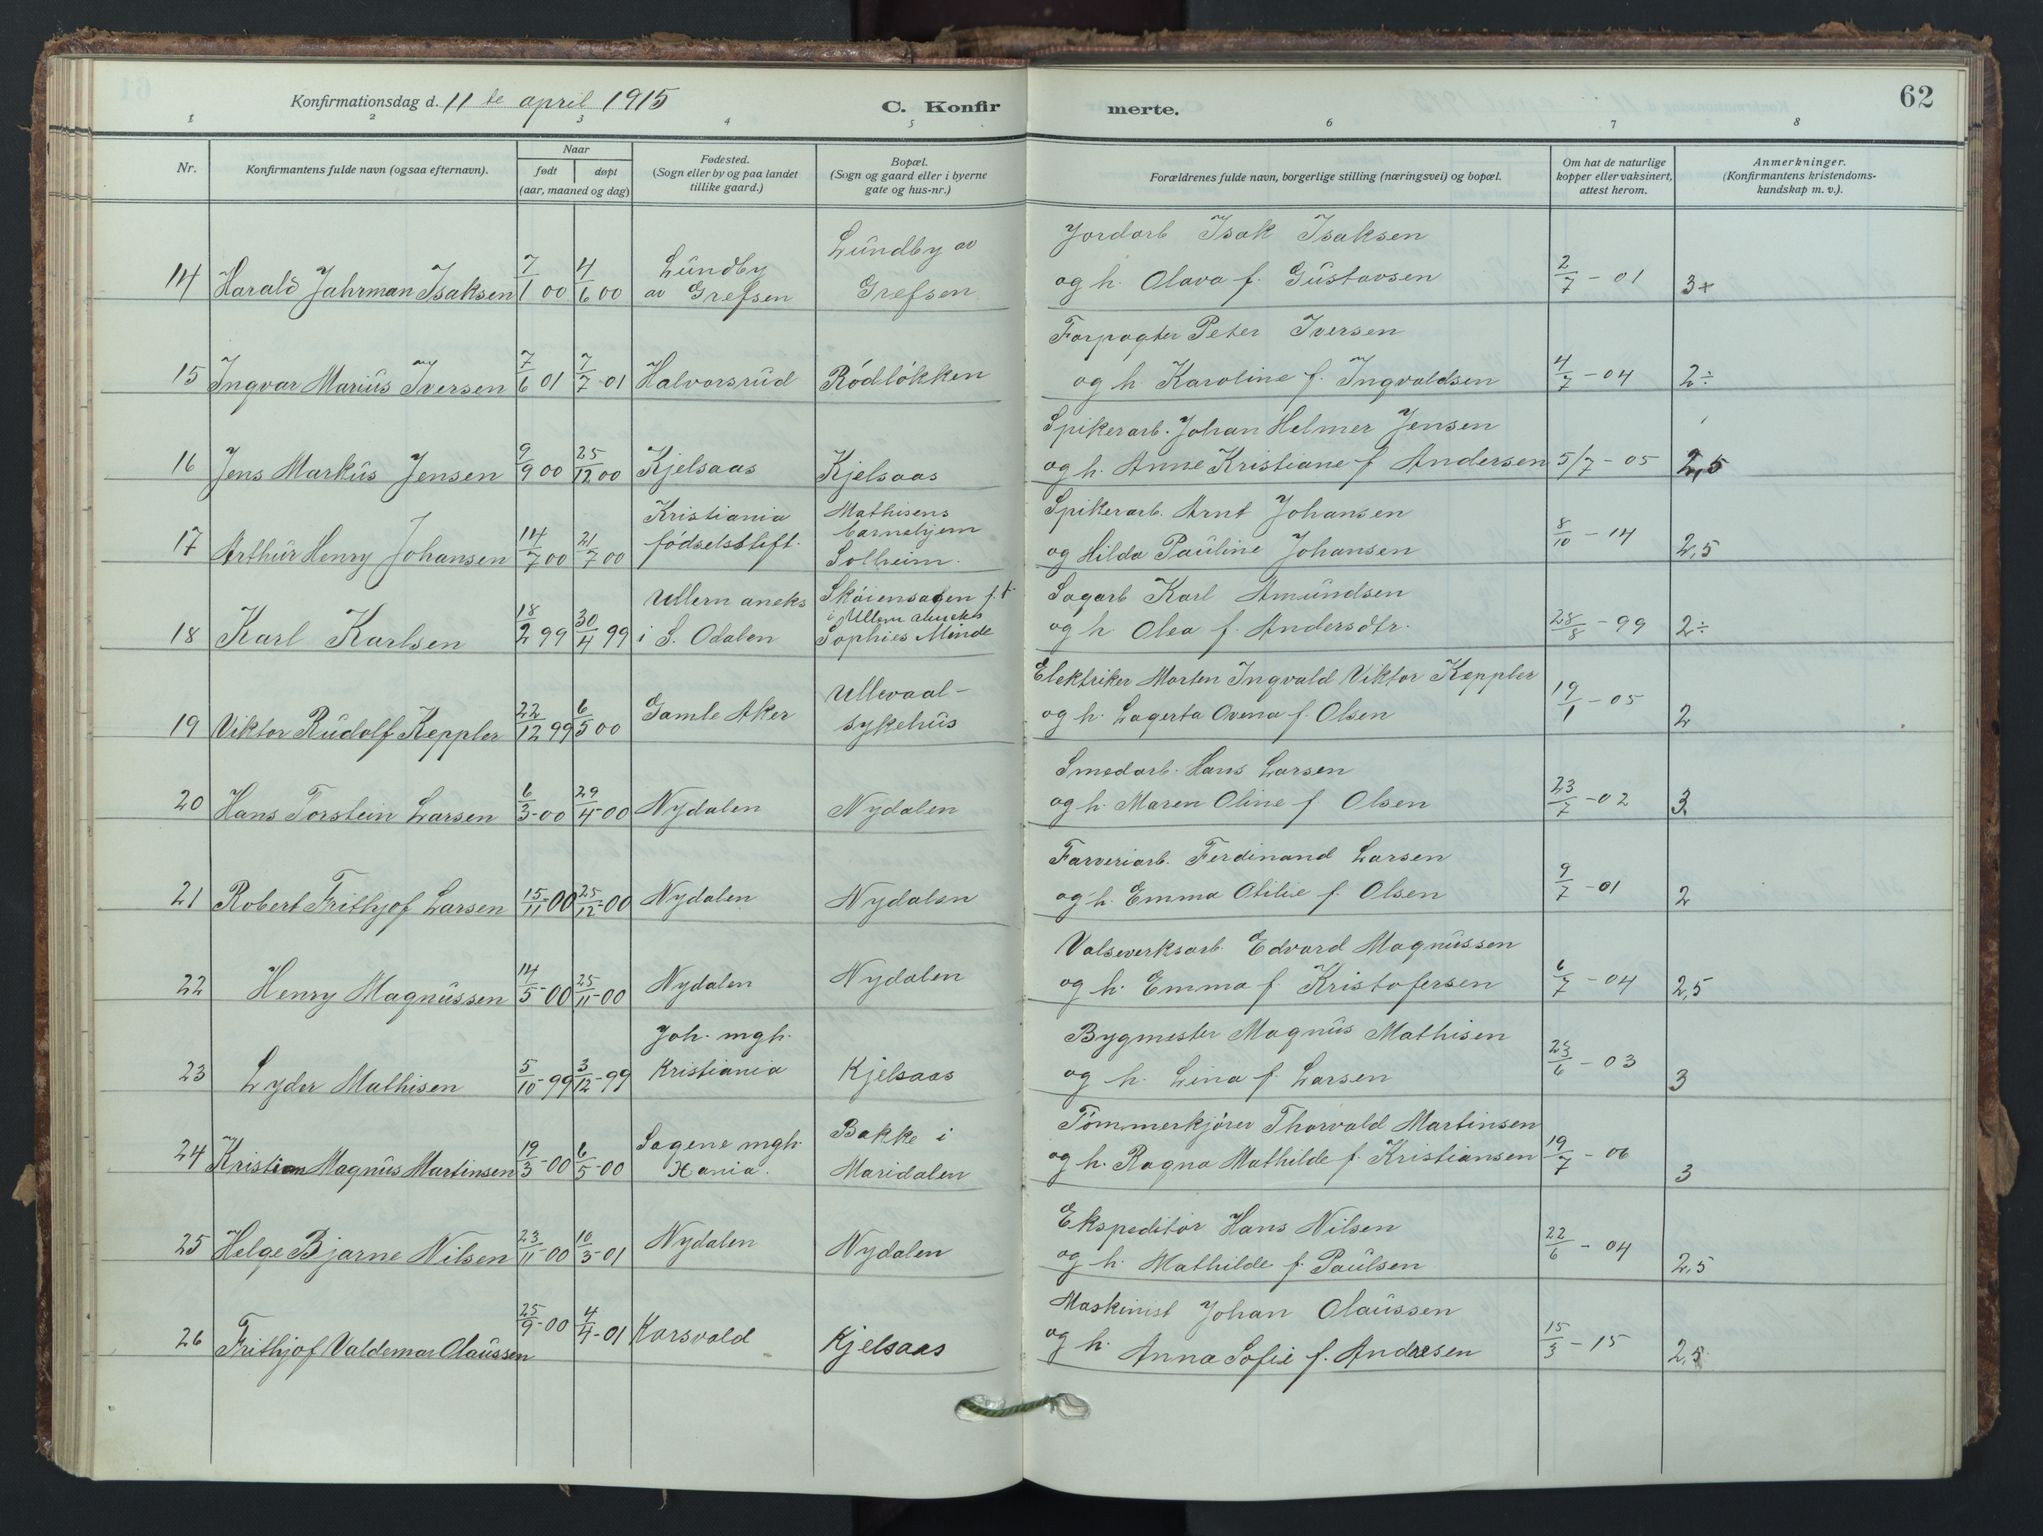 Konfirmationsdag d. 11te april 1915
C. Konfirmerte.
62
1 2 3 4 5 6 7 8
Nr.
Konfirmantens fulde navn (ogsaa efternavn).
Naar
født døpt
(aar, maaned og dag)
Fødested.
(Sogn eller by og paa landet
tillike gaard.)
Bopæl.
(Sogn og gaard eller i byerne
gate og hus-nr.)
Forældrenes fulde navn, borgerlige stilling (næringsvei) og bopæl.
Om hat de naturlige
kopper eller vaksinert,
attest herom.
Anmerkninger.
(Konfirmantens kristendoms-
kundskap m. v.).
14 Harald Jahrman Isaksen 7/1 00 4/6 00
Lundby
av Grefsen
Lundby av
Grefsen
Jordarb Isak Isaksen
og h. Olava f. Gustavsen
2/7 - 01 3+
15 Ingvar Marius Iversen 7/6 01 7/7-01 Halvorsrud Rödlökken
Forpagter Peter Iversen
og h. Karoline f. Ingvaldsen
4/7 - 04 2÷
16 Jens Markus Jensen 9/9 00 25/12 00 Kjelsaas Kjelsaas
Spikerarb. Johan Helmer Jensen
og h. Anne Kristiane f Andersen
5/7 - 05 2,5
17 Arthur Henry Johansen 14/7 00 21/7 00
Kristiania
fødselsstift.
Mathisens
barnehjem
Solheim.
Spikerarb. Arnt Johansen
og Hilda Pauline Johansen
8/10 - 14 2,5
18 Karl Karlsen 18/2 99 30/4 99
Ullern aneks
i S. Odalen
i Ullern aneks
Sophies Minde
Sagarb Karl Amundsen
og h. Olea f. Andersdtr.
28/8 - 99 2÷
19 Viktor Rudolf Keppler 22/12 99 6/5 00
Gamle Aker
Ullevaal-
sykehus
Elektriker Morten Ingvald Viktor Keppler
og h. Lagerta Ovena f. Olsen
19/1 - 05 2
20 Hans Torstein Larsen 6/3-00 29/4-00 Nydalen Nydalen
Smedarb. Hans Larsen
og h. Maren Oline f Olsen
23/7 - 02 3
21 Robert Frithjof Larsen 15/11-00 25/12-00 Nydalen Nydalen
Farveriarb. Ferdinand Larsen
og h. Emma Otilie f. Olsen
9/7 - 01 2
22 Henry Magnussen 14/5-00 25/11-00 Nydalen Nydalen
Valseverksarb. Edvard Magnussen
og h. Emma f. Kristofersen
6/7 - 04 2,5
23 Lyder Mathisen 5/10-99 3/12-99
Joh. mgh.
Kristiania
Kjelsaas
Bygmester Magnus Mathisen
og h. Lina f. Larsen
- 03 3
24 Kristian Magnus Martinsen 19/3-00 6/5-00
Sagene mgh.
Xania.
Bakke i
Maridalen
Tömmerkjörer Thorvald Martinsen
og h. Ragna Mathilde f. Kristiansen
19/7 - 06 3
25 Helge Bjarne Nilsen 23/11-00 10/3-01 Nydalen Nydalen
Ekspeditör Hans Nilsen
og h. Mathilde f. Paulsen
22/6 - 04 2,5
26 Frithjof Valdemar Olaussen 25/9-00 4/4-01 Korsvold Kjelsaas
Maskinist Johan Olaussen
og h. Anna Sofie f. Andresen
15/3 - 15 2,5